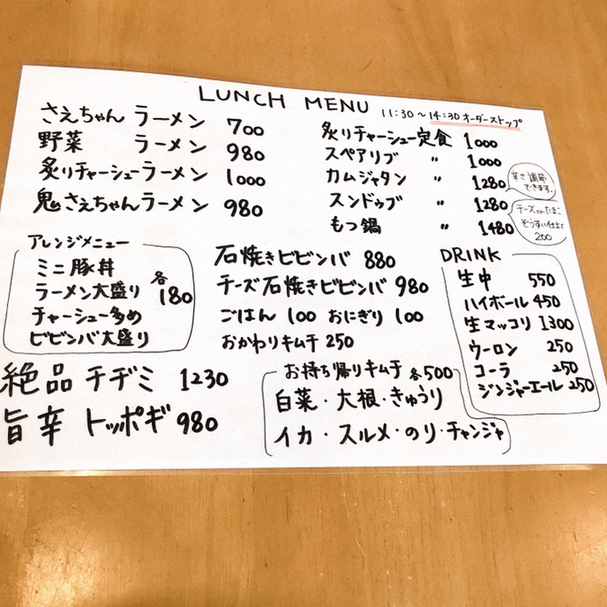 LUNCH MENU 11:30〜14:30 オーダーストップ
さえちゃん ラーメン 700
野菜 ラーメン 980
炙りチャーシューラーメン 1000
鬼さえちゃんラーメン 980
炙りチャーシュー定食 1000
スペアリブ 〃 1000
カムジャタン 〃 1280
スンドゥブ 〃 1280
もつ鍋 〃 1480
辛さ調節
できます。
チーズ たまご
ぞうすい仕上げ
200
アレンジメニュー
ミニ豚丼
ラーメン大盛り
チャーシュー多め
ビビンバ大盛り
各180
石焼きビビンバ 880
チーズ石焼きビビンバ 980
ごはん 100 おにぎり 100
おかわりキムチ 250
絶品 チヂミ 1230
旨辛 トッポギ 980
お持ち帰りキムチ 各500
白菜・大根・きゅうり
イカ・スルメ・のり・チャンジャ
DRINK
生中 550
ハイボール 450
生マッコリ 1300
ウーロン 250
コーラ 250
ジンジャーエール 250